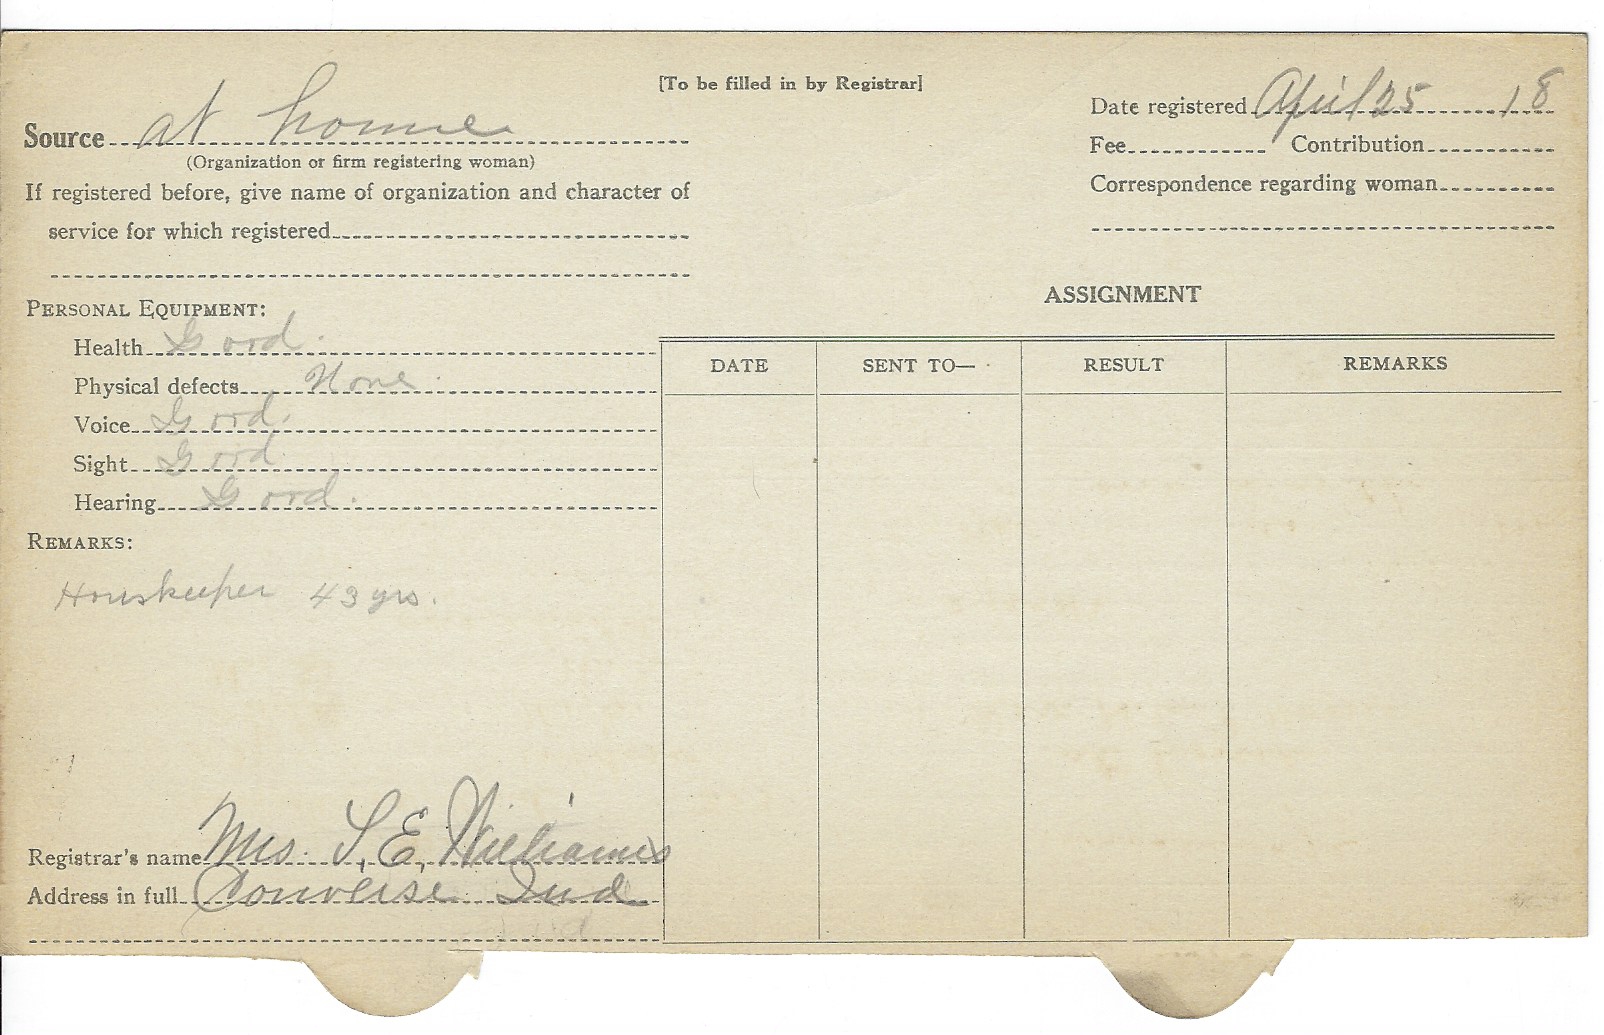 [To be filled in by Registrar]
Source at home
(Organization or firm registering woman)
If registered before, give name of organization and character of
service for which registered
Date registered April 25 18
Fee Contribution
Correspondence regarding woman
PERSONAL EQUIPMENT:
Health Good.
Physical defects None.
Voice Good.
Sight Good.
Hearing Good.
REMARKS:
Houskeeper 43 yrs.
Registrar's name Mrs. S. E. Williams
Address in full Converse Ind
ASSIGNMENT
DATE SENT TO— RESULT REMARKS